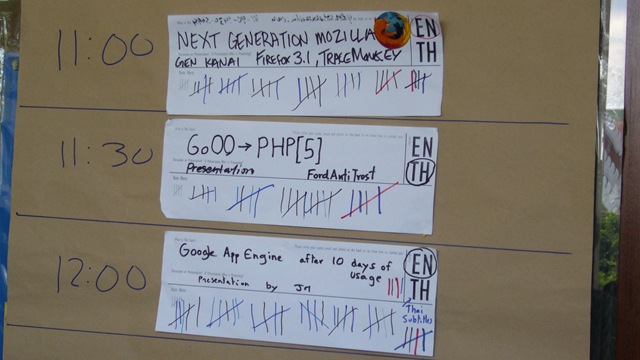 11:00
NEXT GENERATION MOZILLA
GEN KANAI FIREFOX 3.1, TRACEMONKEY
EN
TH
11:30
GoOO → PHP[5]
Presentation FordAntiTrust
EN
TH
12:00
Google App Engine after 10 days of
usage
Presentation by
EN
TH
Thai
Subtitles